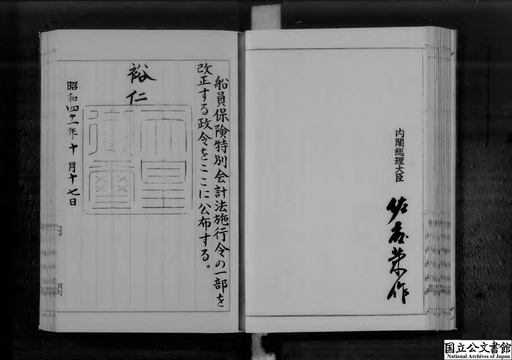 船員保険特別会計法施行令の一部を
改正する政令をここに公布する。
裕仁
天皇
御璽
昭和四十一年十月十七日
内閣総理大臣
佐藤榮作
国立公文書館
National Archives of Japan